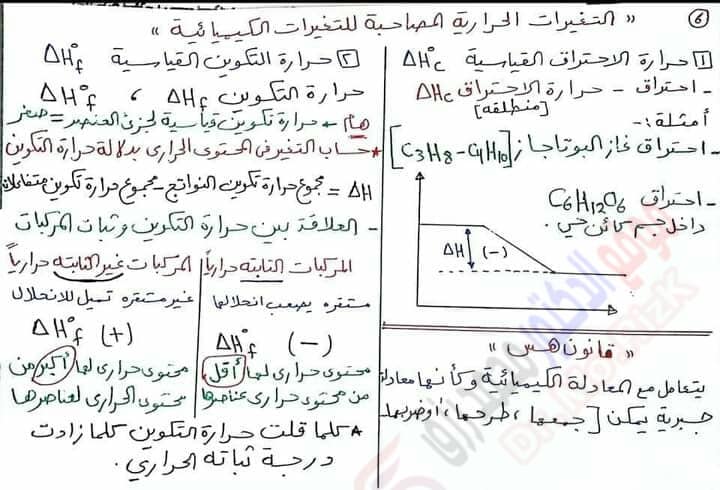 ٦
« التغيرات الحرارية المصاحبة للتغيرات الكيميائية »
١ حرارة الاحتراق القياسية ΔH°c
- احتراق - حرارة الاحتراق ΔHc
[منطلقه]
أمثلة :-
- احتراق غاز البوتاجاز [C3H8 - C4H10]
- احتراق C6H12O6
داخل جسم كائن حي.
ΔH (-)
« قانون هس »
يتعامل مع المعادلة الكيميائية وكأنها معادلة
جبرية يمكن [جمعها ، طرحها ، أو ضربها
٢ حرارة التكوين القياسية ΔH°f
حرارة التكوين ΔHf ، ΔH°f
هام * حرارة تكوين قياسية لجزئ العنصر = صفر
* حساب التغير فى المحتوى الحرارى بدلالة حرارة التكوين
ΔH = مجموع حرارة تكوين النواتج - مجموع حرارة تكوين متفاعلات
- العلاقة بين حرارة التكوين و ثبات المركبات
المركبات الثابته حرارياً
مستقره يصعب انحلالها
ΔH°f (-)
محتوى حرارى لها أقل
من محتوى حرارى عناصرها
المركبات غير الثابته حرارياً
غير مستقره تميل للانحلال
ΔH°f (+)
محتوى حرارى لها أكبر من
محتوى الحرارى لعناصرها
* كلما قلت حرارة التكوين كلما زادت
درجة ثباته الحراري.